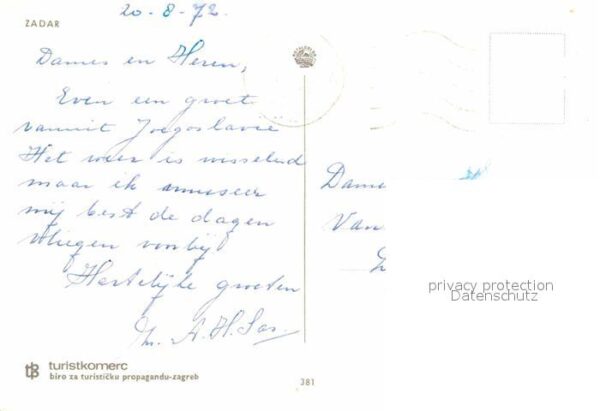 20-8-72
ZADAR
Dames en Heren,
Even een groet
vanuit Joegoslavië
Het weer is wisselend
maar ik amuseer
mij best de dagen
vliegen voorbij
Hartelijke groeten
A.H. Sas.
Dame
Van
privacy protection
Datenschutz
turistkomerc
biro za turističku propagandu-zagreb
381